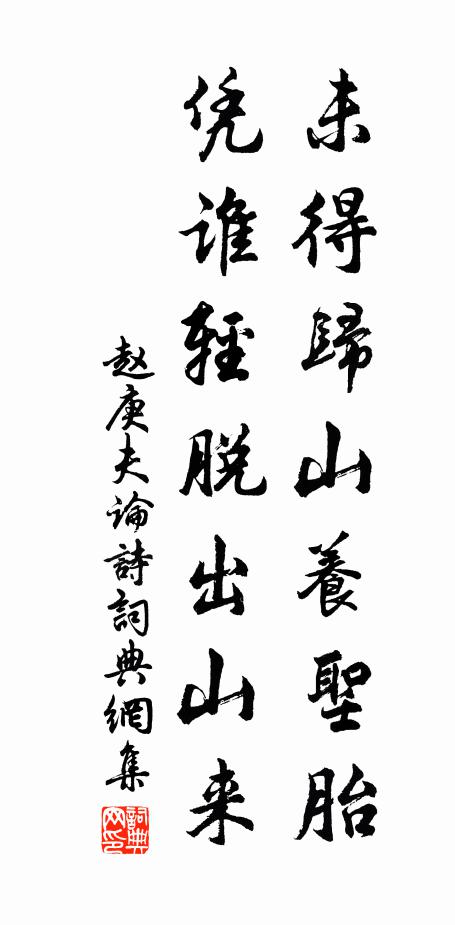 未得歸山養聖胎
凭誰輕脫出山来
赵庚夫论詩詞典網集
詞典网印